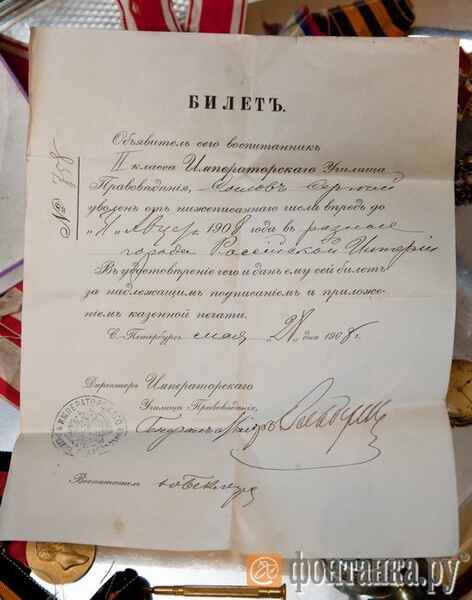 БИЛЕТЪ.
№ 758
Объявитель сего воспитанникъ
II класса Императорскаго Училища
Правовѣдѣнія, Сергѣй
уволенъ отъ нижеписаннаго числа впредь до
1908 года въ разные
города Россійской Имперіи
Въ удостовѣреніе чего и данъ ему сей билетъ
за надлежащимъ подписаніемъ и приложе-
ніемъ казенной печати.
С.-Петербургъ мая 28 дня 1908 г.
Директоръ Императорскаго
Училища Правовѣдѣнія,
Воспитатель
фонтанка.ру